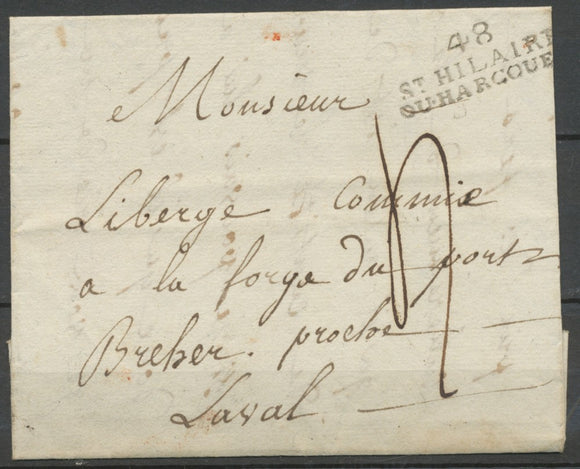 48
ST HILAIRE
DU-HARCOUE
Monsieur
Liberge Commis
a la forge du port
Breher. proche
Laval.